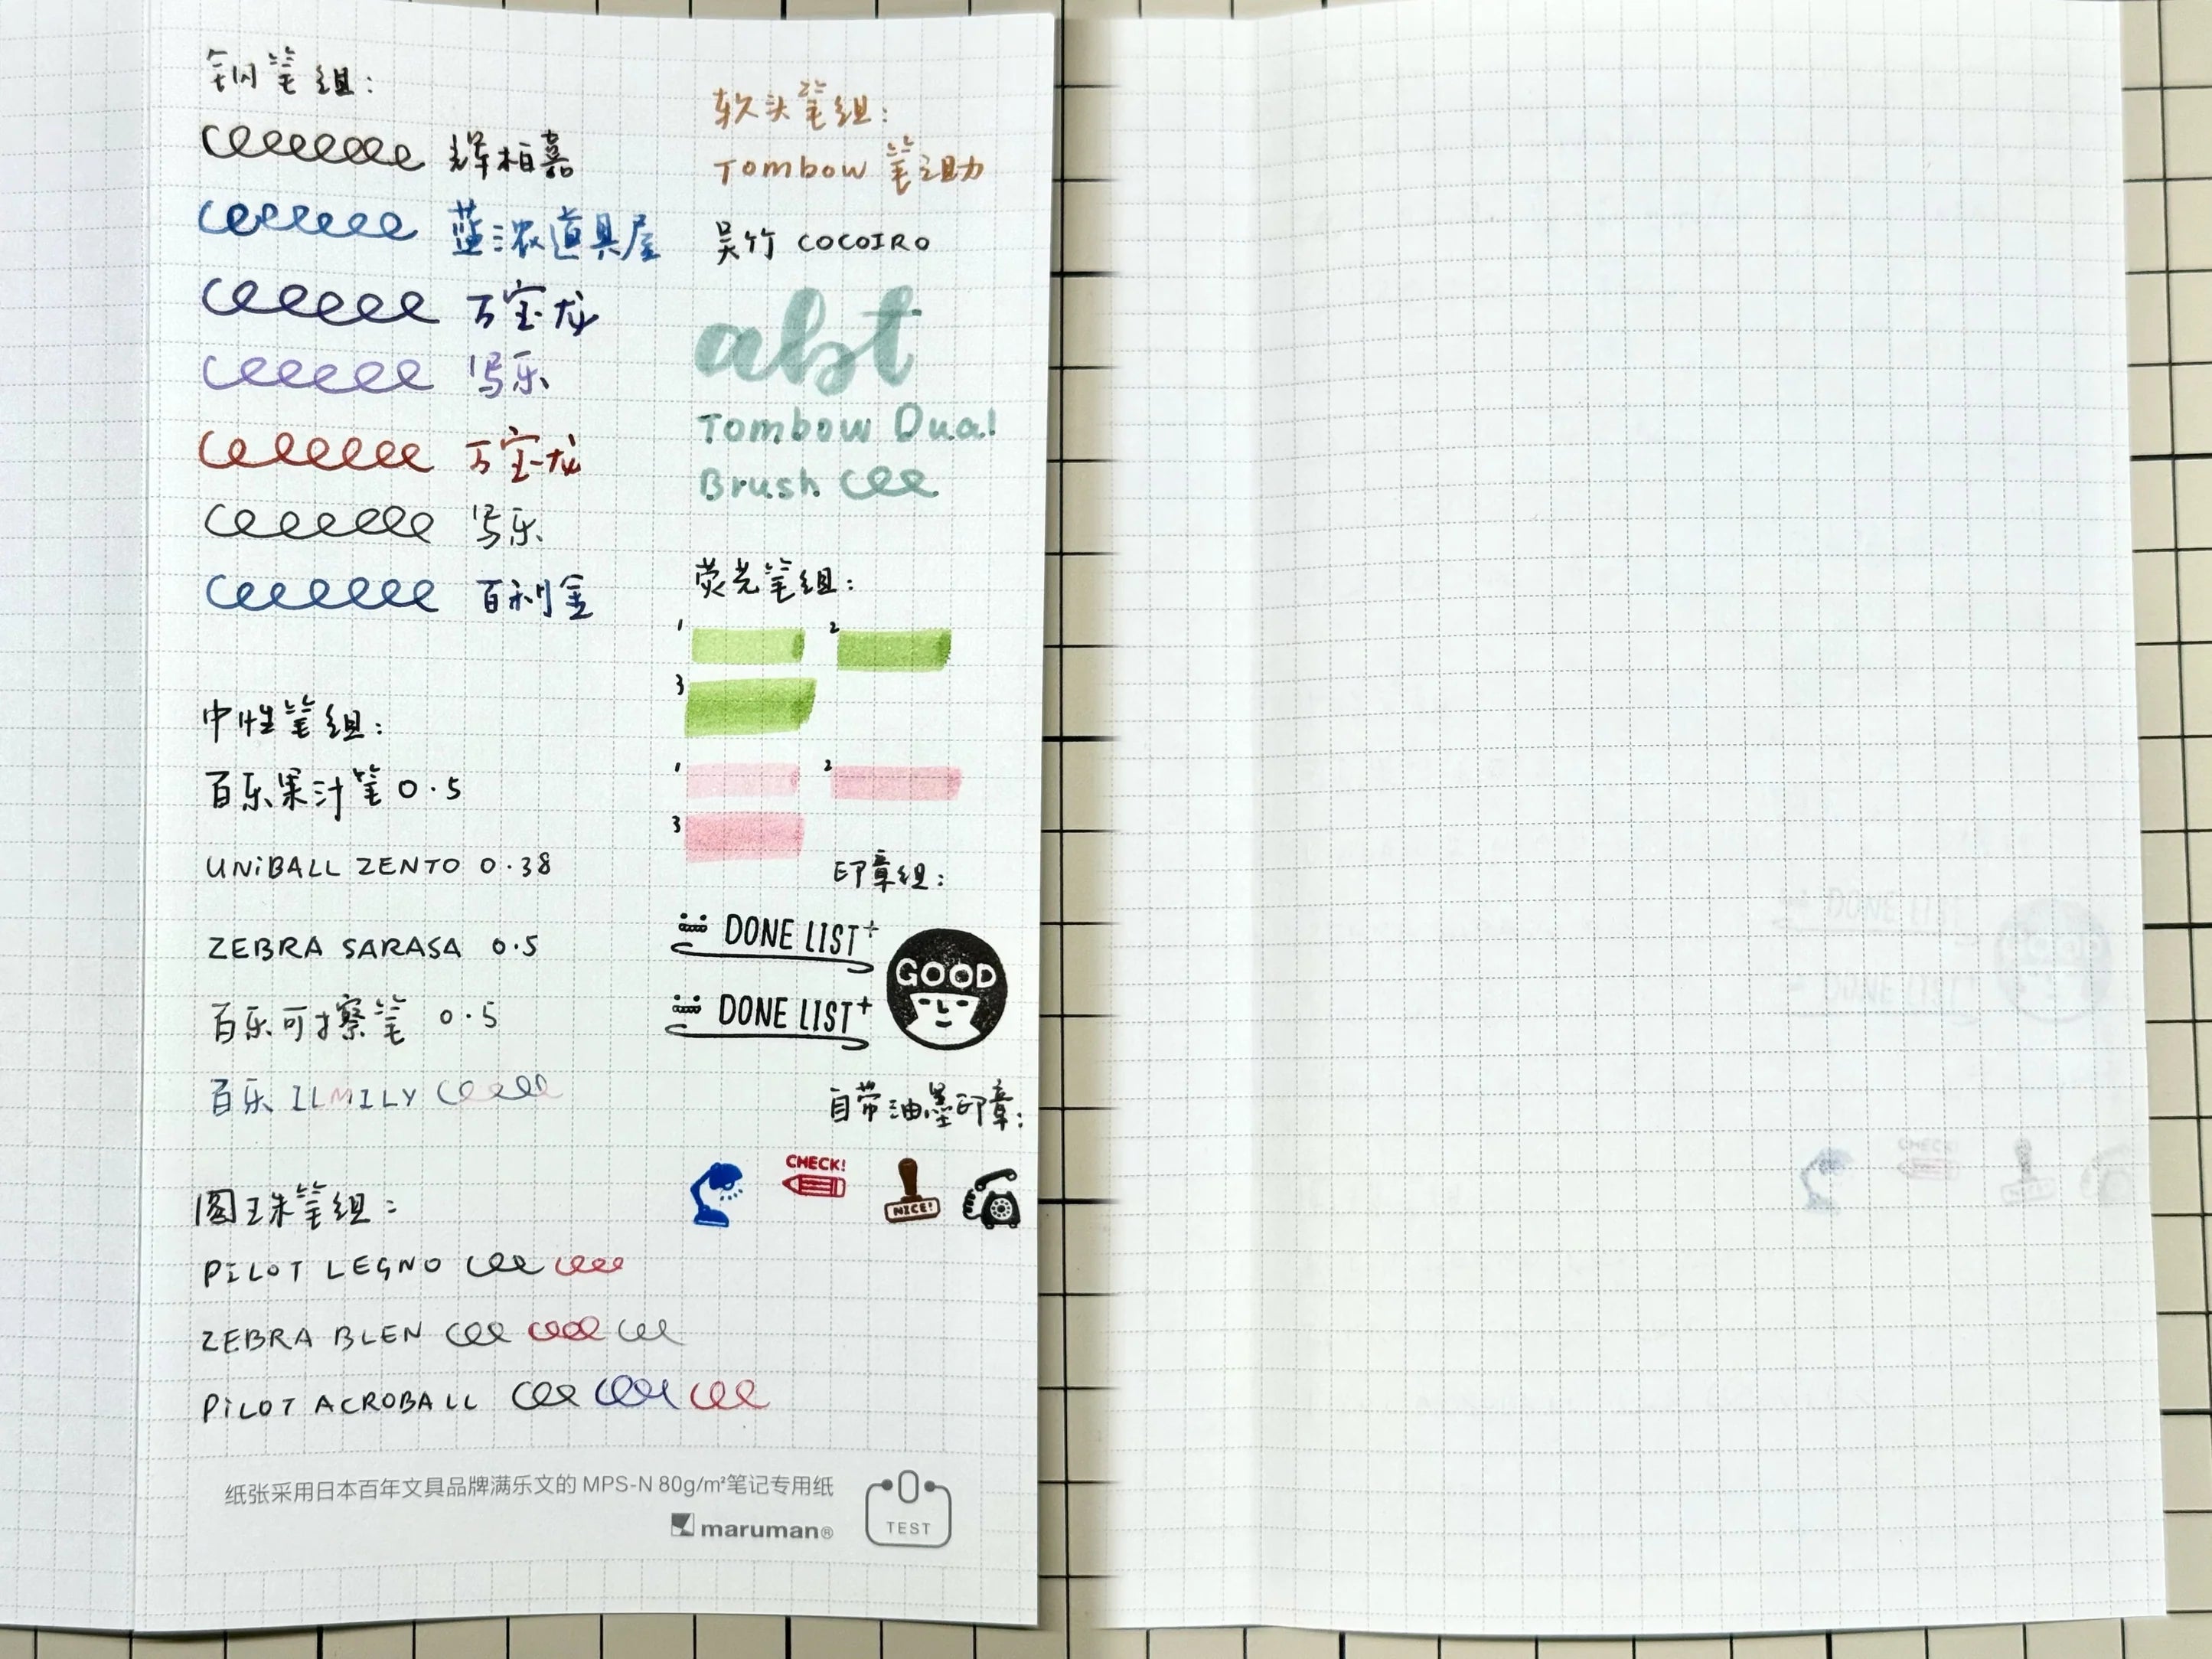 钢笔组:
辉柏嘉
蓝浓道具屋
万宝龙
写乐
万宝龙
写乐
百利金
中性笔组:
百乐果汁笔 0.5
UNiBALL ZENTO 0.38
ZEBRA SARASA 0.5
百乐可擦笔 0.5
百乐 ILMILY
圆珠笔组:
PILOT LEGNO
ZEBRA BLEN
PILOT ACROBALL
软头笔组:
Tombow 笔之助
吴竹 COCOIRO
abt
Tombow Dual
Brush
荧光笔组:
1 2
3
1 2
3
印章组:
DONE LIST+
GOOD
DONE LIST+
自带油墨印章:
CHECK!
NICE!
纸张采用日本百年文具品牌满乐文的 MPS-N 80g/m²笔记专用纸
maruman®
TEST
DONE LIST
DONE LIST
CHECK!